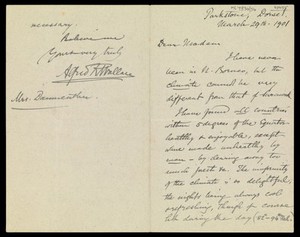 necessary.
Believe me
Yours very truly
Alfred R. Wallace
Mrs.
Parkstone, Dorset.
March 29th. 1901
Dear Madam
I have never
been in N. Borneo, but the
climate cannot be very
different from that of Sarawak.
I have found all countries
within 5 degrees of the Equator
healthy & enjoyable, except
those made unhealthy by
man - by clearing away too
much forest &c. The uniformity
of the climate is so delightful,
the nights being always cool &
refreshing, though of course
hot during the day